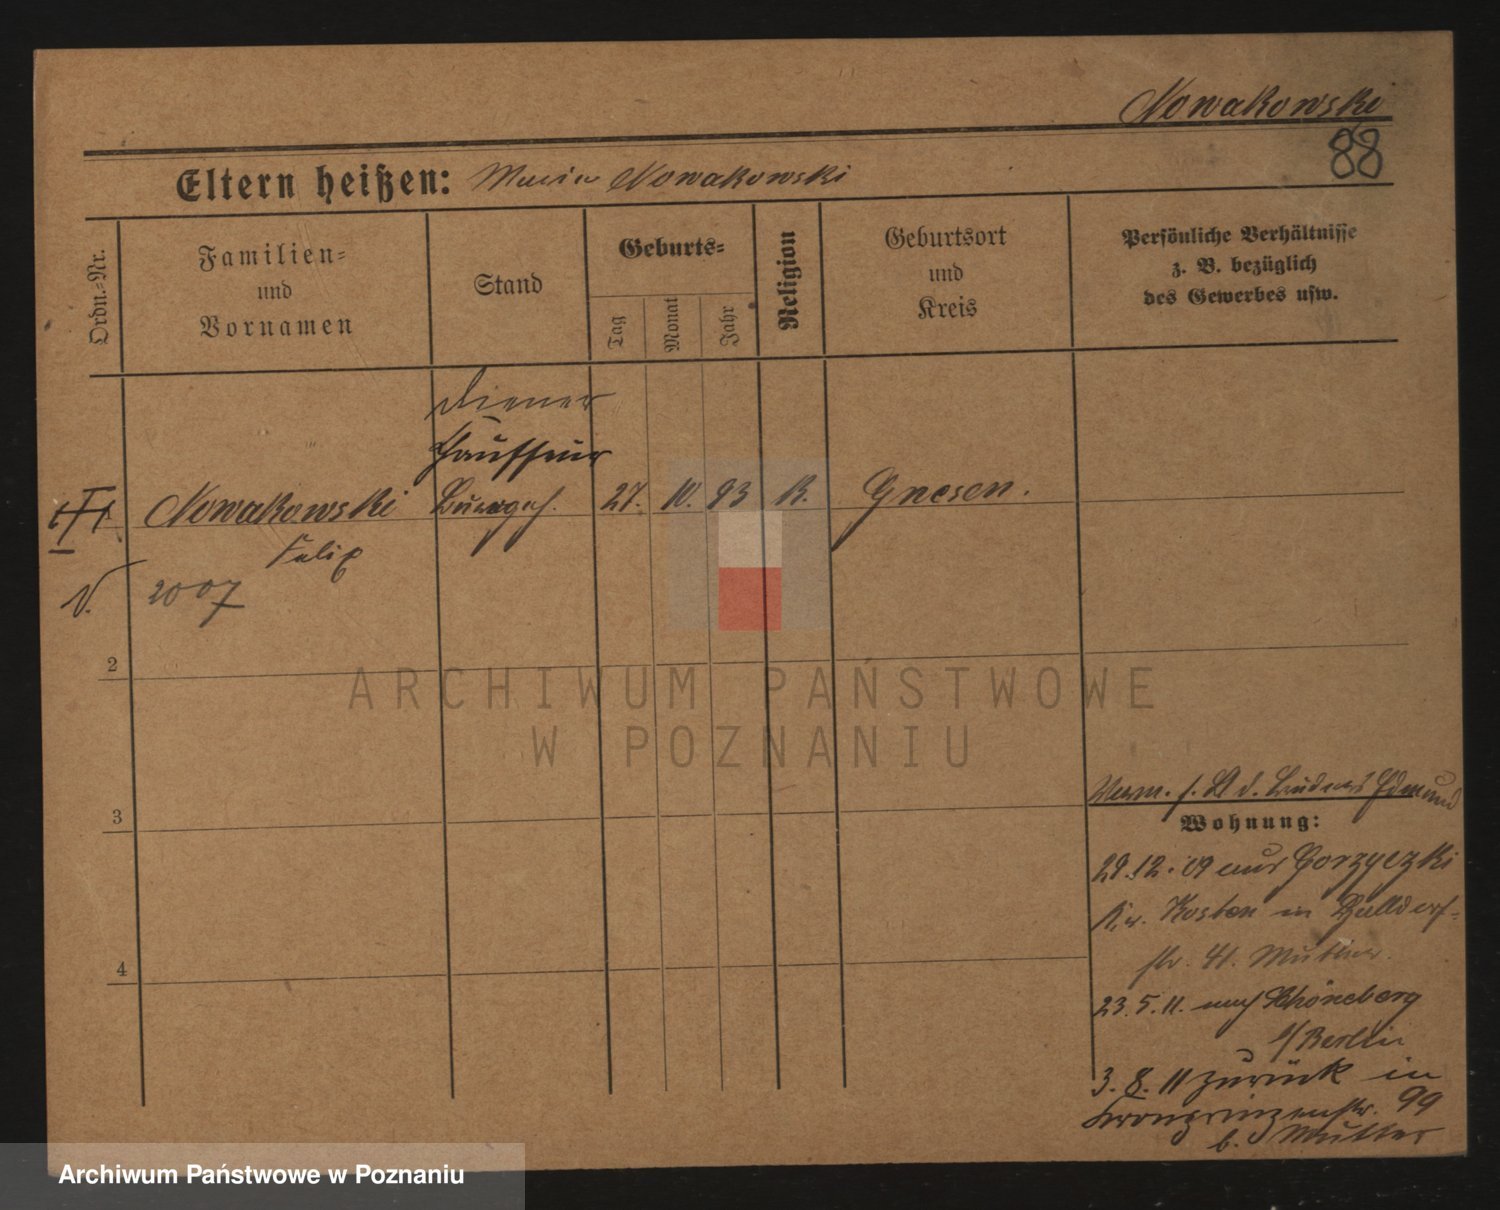 Nowakowski
88
Eltern heißen: Maria Nowakowski
Ordn.-Nr.
Familien=
und
Vornamen
Stand
Geburts=
Tag
Monat
Jahr
Religion
Geburtsort
und
Kreis
Persönliche Verhältnisse
z. B. bezüglich
des Gewerbes usw.
Diener
Chauffeur
Nowakowski
27. 10. 93 K. Gnesen.
Felix
V. 2007
2
3
4
Verm. s. d. Bruders Edmund
Wohnung:
29.12.09 aus Gorzyczki
Kr. Kosten in
str. 41. Mutter.
23.5.11. nach Schöneberg
b/Berlin
3.8.11 zurück in
Kronprinzenstr. 99
b. Mutter
ARCHIWUM PAŃSTWOWE
W POZNANIU
Archiwum Państwowe w Poznaniu